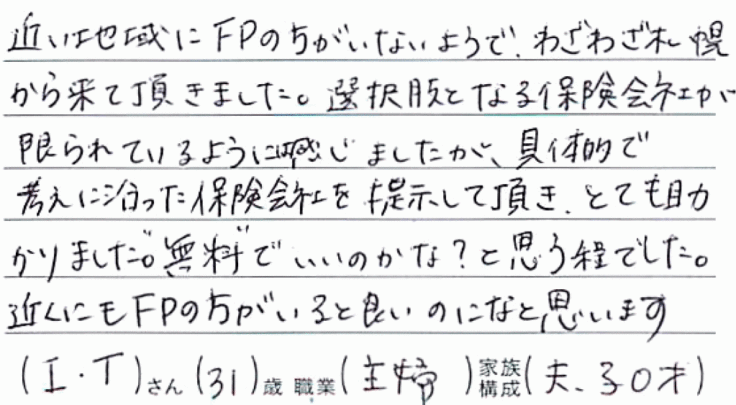 近い地域にFPの方がいないようで、わざわざ札幌
から来て頂きました。選択肢となる保険会社が
限られているように感じましたが、具体的で
考えに沿った保険会社を提示して頂き、とても助
かりました。"無料"でいいのかな?と思う程でした。
近くにもFPの方がいると良いのになと思います
(I・T)さん(31)歳 職業(主婦)家族構成(夫、子0才)